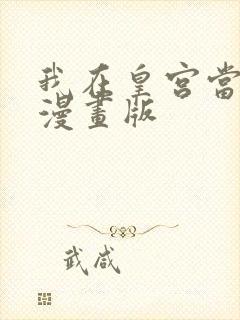 我在皇宮當
漫畫版
武咸